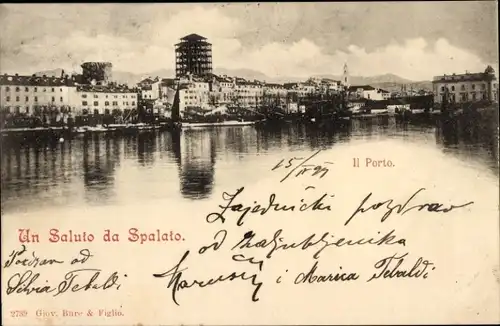 15/IV 99
Il Porto.
Zajednički pozdrav
od Zaljubljenika
Un Saluto da Spalato.
Pozdrav od
Silvia Tebaldi
i Marica Tebaldi
2739 Giov. Bure & Figlio.